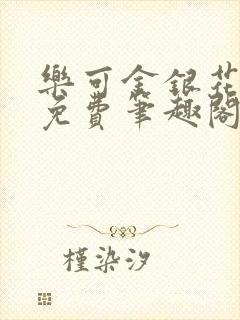 樂可金銀花
免費筆趣閣
槿染汐